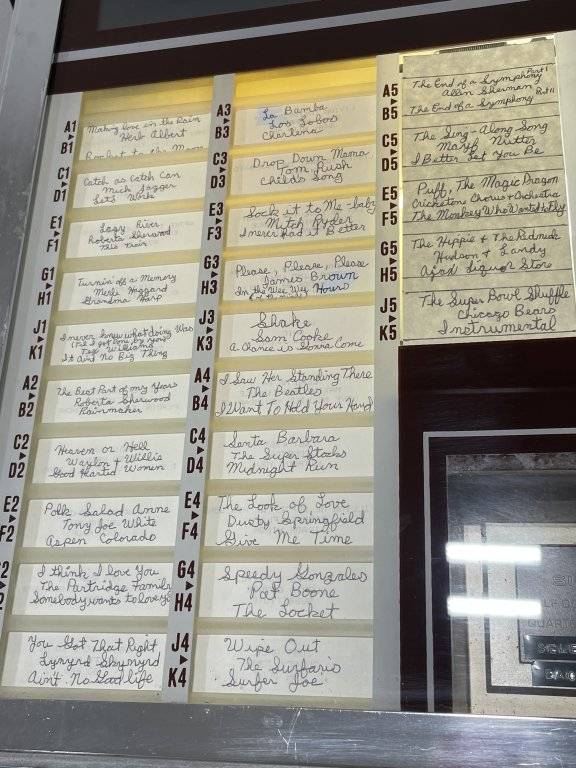 A1
B1
Making love in the Rain
Herb Albert
Rocket to the Moon
C1
D1
Catch as Catch Can
Mick Jagger
Let's Work
E1
F1
Lazy River
Roberta Sherwood
This Train
G1
H1
Turnin' off a Memory
Merle Haggard
Grandma Harp
J1
K1
I never knew what doing Was
(Til I got Done by You)
Williams
It Ain't No Big Thing
A2
B2
The Best Part of my Years
Roberta Sherwood
Rainmaker
C2
D2
Heaven or Hell
Waylon + Willie
Good Hearted Women
E2
F2
Polk Salad Anne
Tony Joe White
Aspen Colorado
2
2
I think I love You
The Partridge Family
Somebody wants to love yo
You Got That Right
Lynyrd Skynyrd
Ain't No Good life
A3
B3
La Bamba
Los Lobos
Charlena
C3
D3
Drop Down Mama
Tom Rush
Child's Song
E3
F3
Sock it to Me-baby
Mitch Ryder
I never Had it Better
G3
H3
Please, Please, Please
James Brown
In the Wee Wee Hours
J3
K3
Shake
Sam Cooke
A Chance is Gonna Come
A4
B4
I Saw Her Standing There
The Beatles
I Want To Hold Your Hand
C4
D4
Santa Barbara
The Super Stocks
Midnight Run
E4
F4
The Look of Love
Dusty Springfield
Give Me Time
G4
H4
Speedy Gonzales
Pat Boone
The Locket
J4
K4
Wipe Out
The Surfaris
Surfer Joe
A5
B5
The End of a Symphony Part I
Allen Sherman
The End of a Symphony Part II
C5
D5
The Sing-Along Song
Mayf Nutter
I Better Let You Be
E5
F5
Puff, The Magic Dragon
Cricketone Chorus + Orchestra
The Monkey Who Wanted to Fly
G5
H5
The Hippie + The Redneck
Hudson + Landry
Ajax Liquor Store
J5
K5
The Super Bowl Shuffle
Chicago Bears
Instrumental